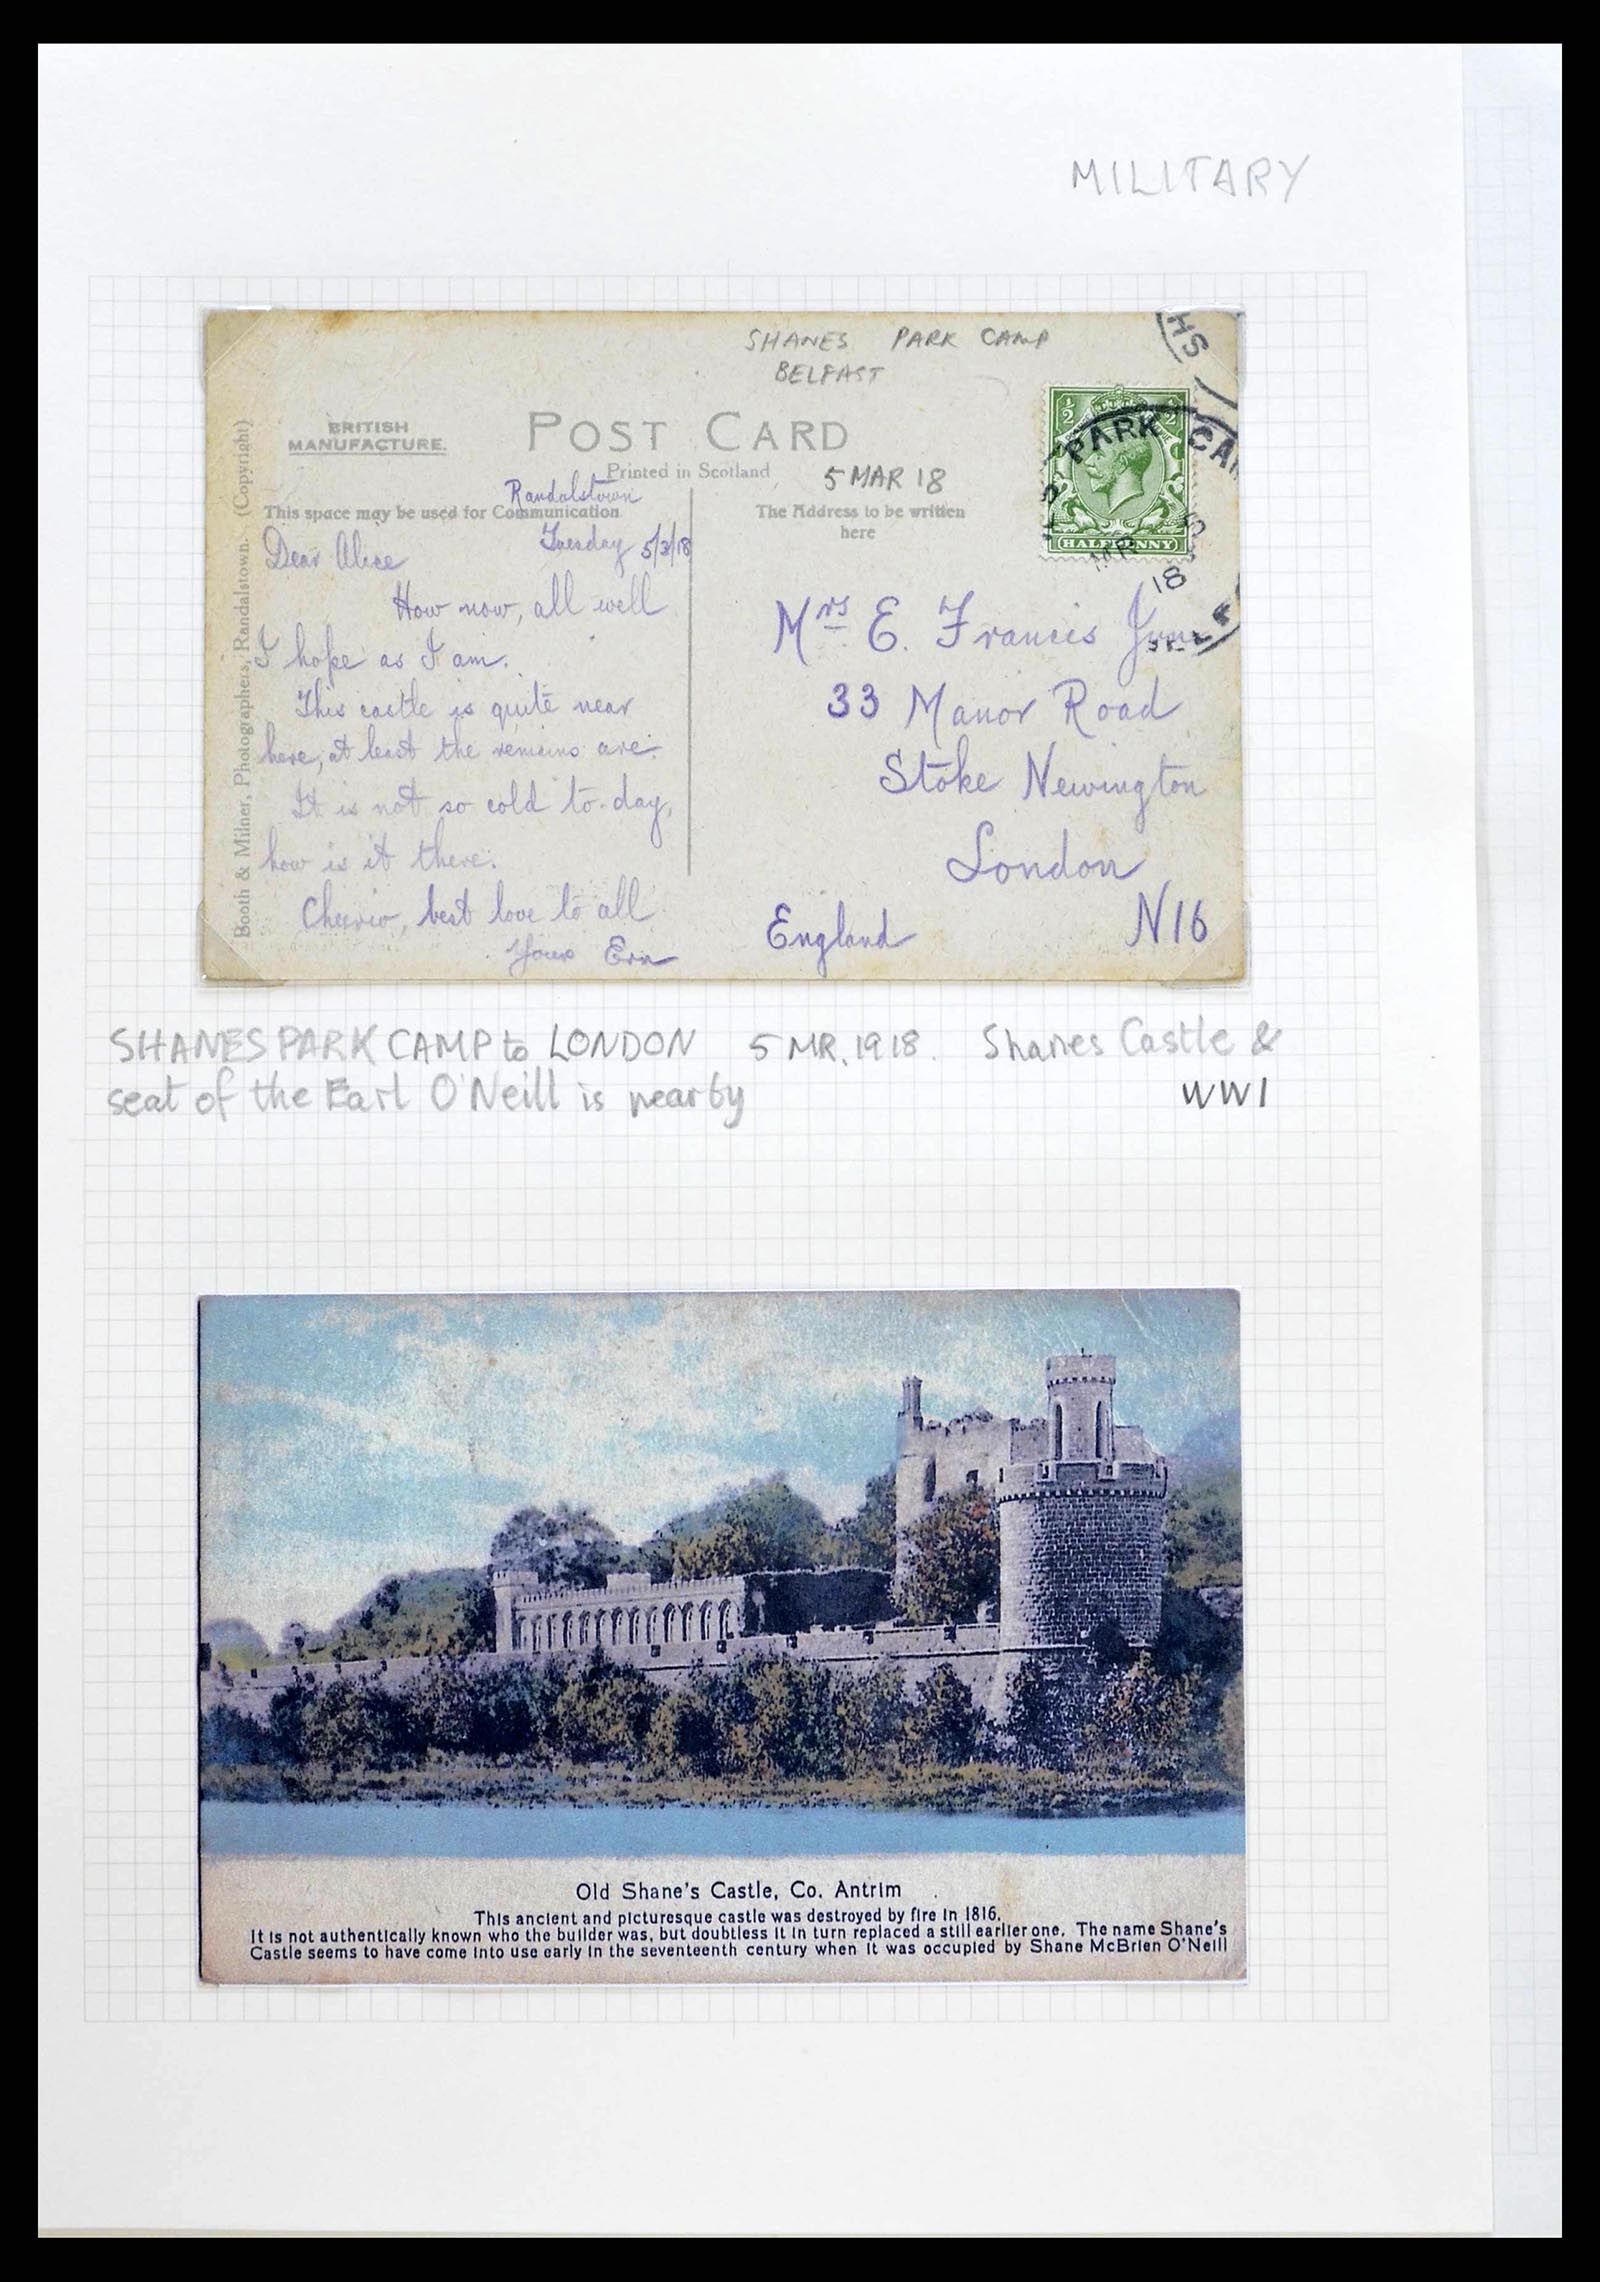 MILITARY
SHANES PARK CAMP
BELFAST
BRITISH
MANUFACTURE.
POST CARD
Printed in Scotland
5 MAR 18
HALFPENNY
PARK CA
MR
18
Booth & Milner, Photographers, Randalstown. (Copyright)
Randalstown
This space may be used for Communication
The Address to be written
here
Tuesday 5/3/18
Dear Alice
How now, all well
I hope as I am.
This castle is quite near
here, at least the remains are.
It is not so cold to-day,
how is it there.
Cheerio, best love to all
Yours Ern
Mrs E. Francis Jun
33 Manor Road
Stoke Newington
London
England N16
SHANES PARK CAMP to LONDON 5 MR. 1918. Shanes Castle &
seat of the Earl O'Neill is nearby WW1
Old Shane's Castle, Co. Antrim
This ancient and picturesque castle was destroyed by fire in 1816.
It is not authentically known who the builder was, but doubtless it in turn replaced a still earlier one. The name Shane's
Castle seems to have come into use early in the seventeenth century when it was occupied by Shane McBrien O'Neill